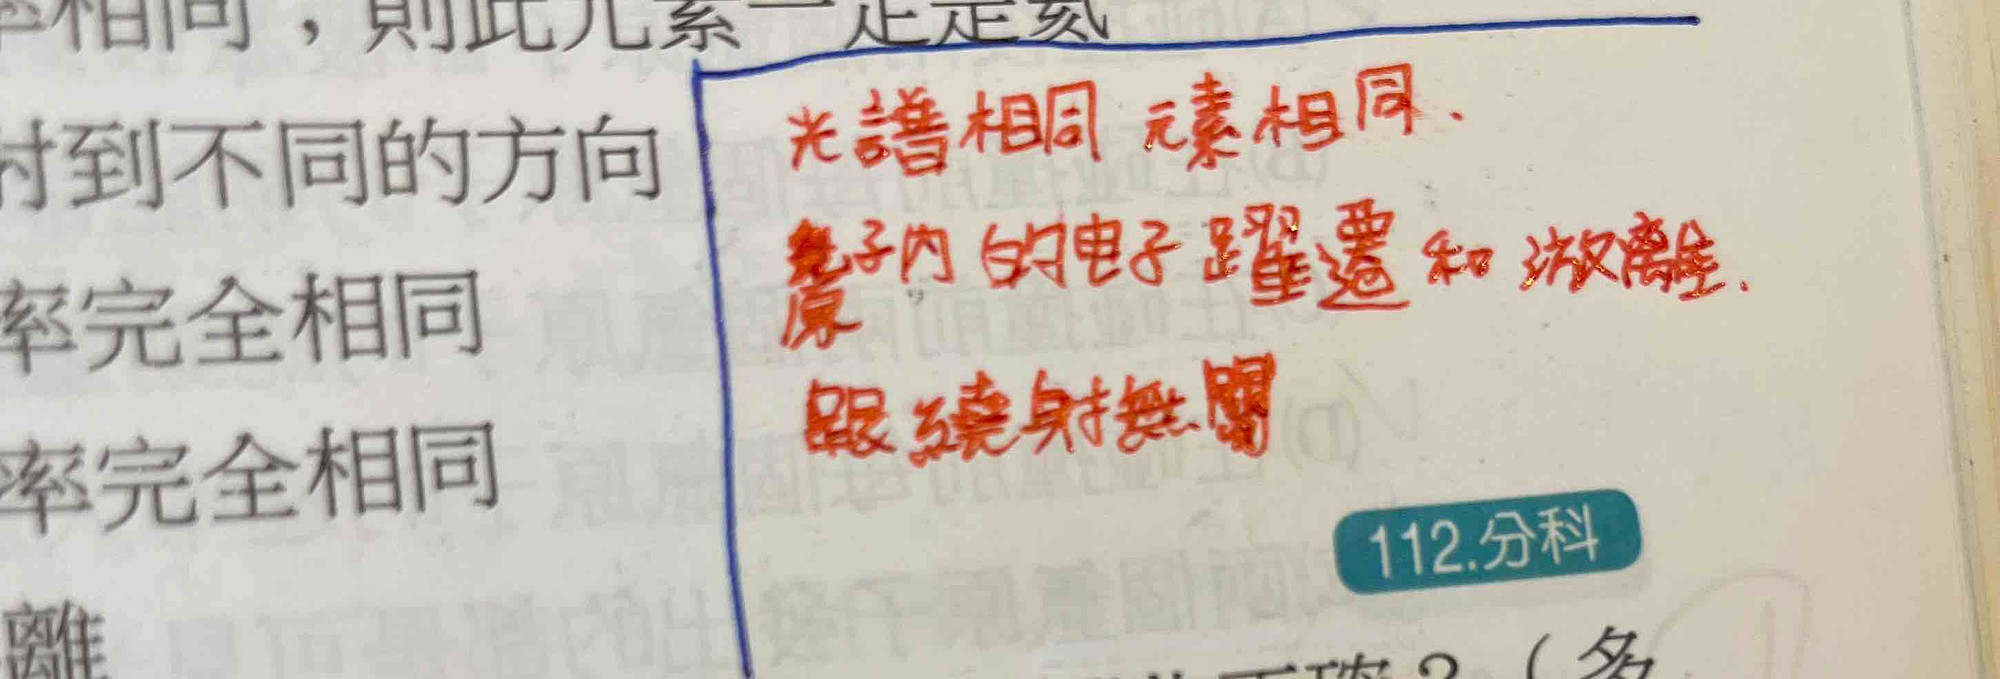 率相同，則此元素一定是氦
光譜相同 元素相同.
射到不同的方向
原子內的电子躍遷和游離.
率完全相同
跟繞射無關
率完全相同
112.分科
離
（多